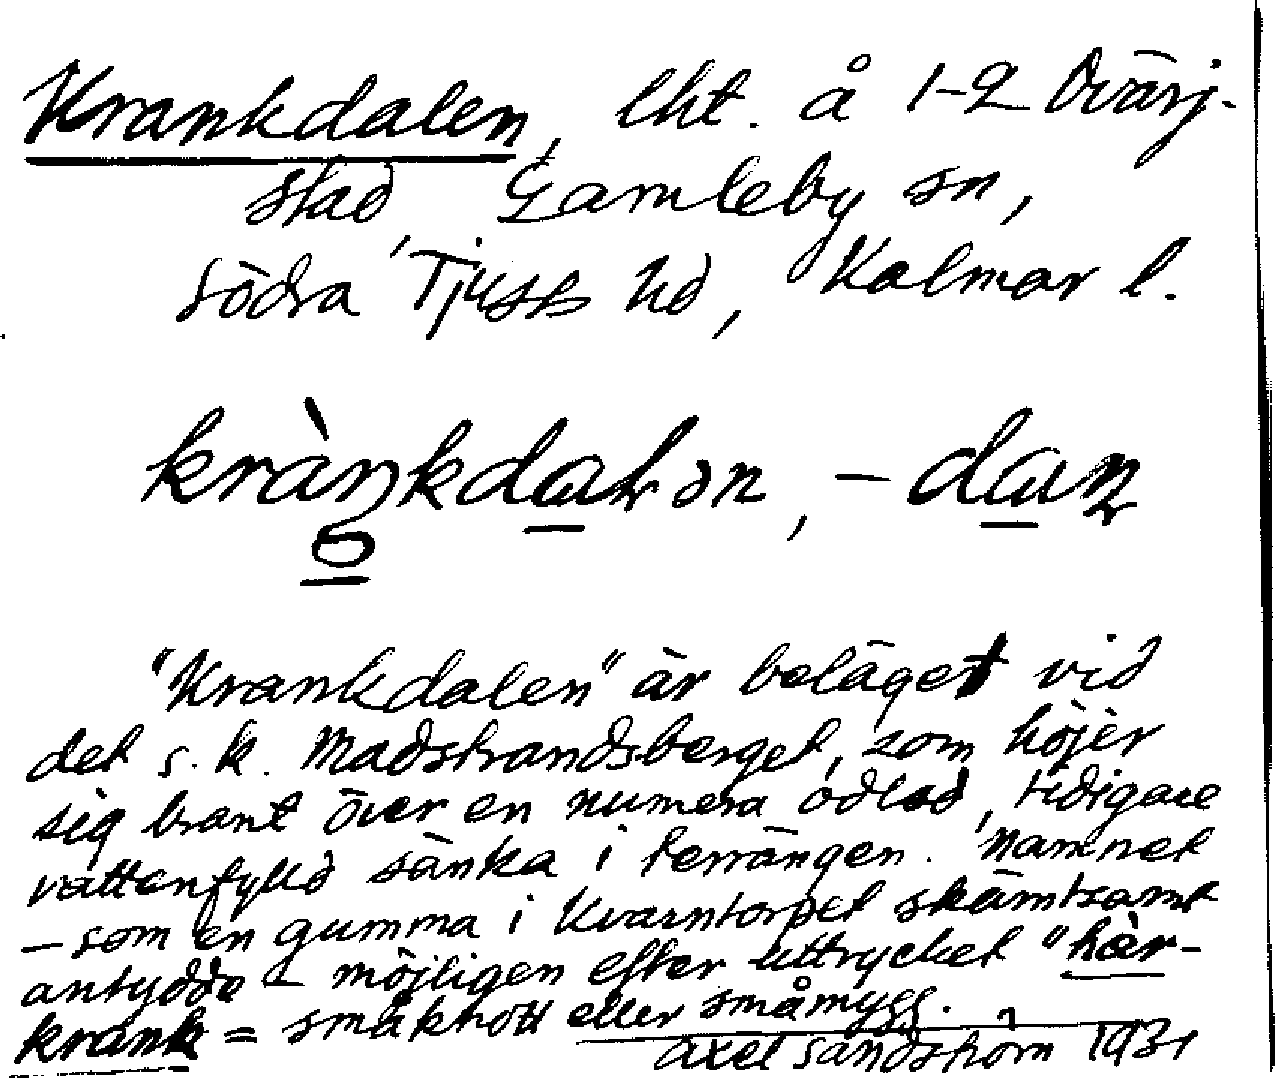 Krankdalen, lht. å 1-2 Övärj-
stad, Gamleby sn,
södra Tjusts hd, Kalmar l.
kràŋkdaлən, -daɳ
"Krankdalen" är beläget vid
det s.k. Madstrandsberget, som höjer
sig brant över en numera odlad, tidigare
vattenfylld sänka i terrängen. Namnet
– som en gumma i Kvarntorpet skämtsamt
antydde – möjligen efter uttrycket "här-
krank = småknott eller småmygg.
Axel Sandström 1931